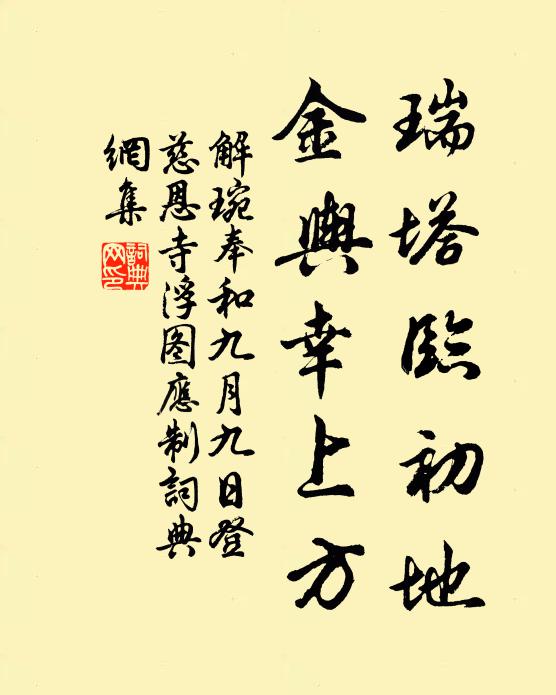 瑞塔臨初地
金輿幸上方
解琬奉和九月九日登
慈恩寺浮图應制詞典
網集
詞典
网印